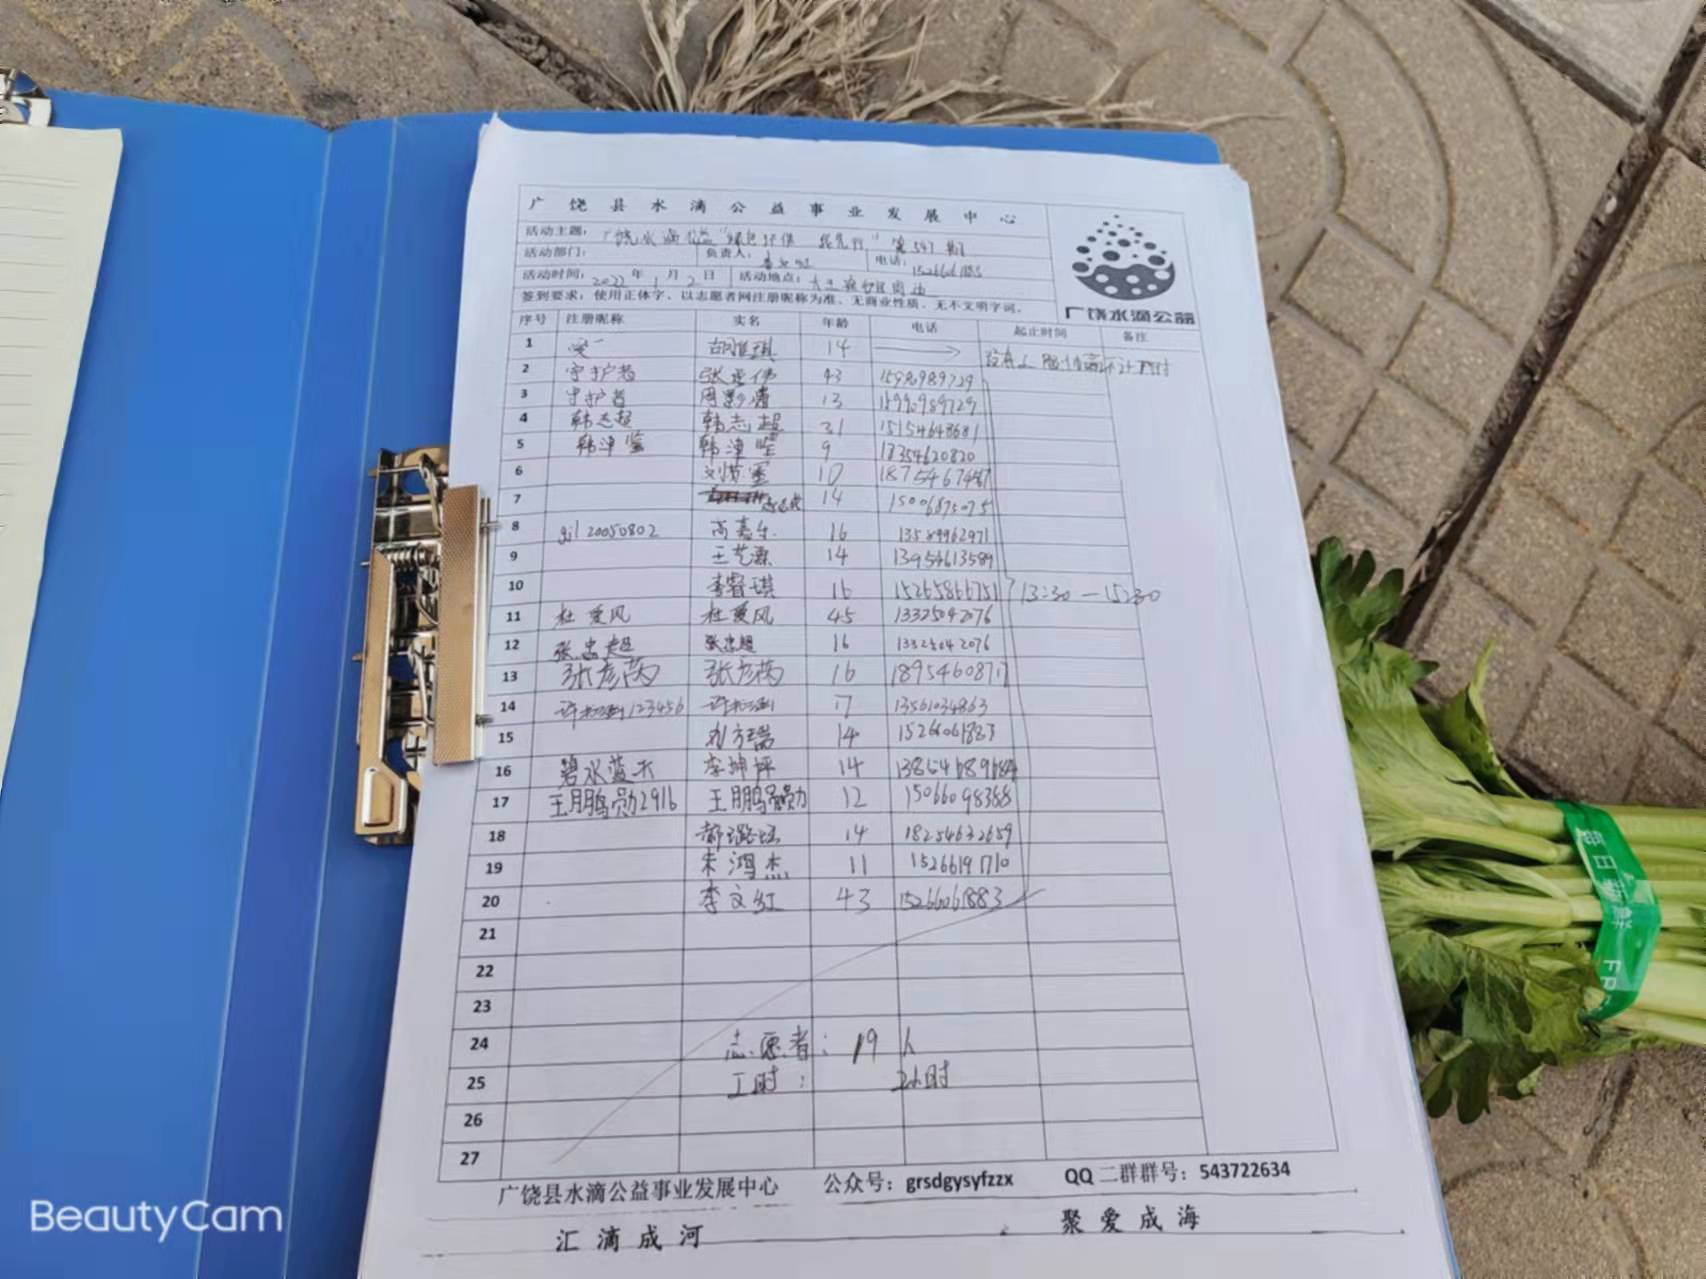 广饶县水滴公益事业发展中心
活动主题：广饶水滴公益"绿色环保 我先行"第547期
活动部门： 负责人：李文红 电话：15266061883
活动时间：2022年1月2日 活动地点：
签到要求：使用正体字、以志愿者网注册昵称为准、无商业性质、无不文明字词。
广饶水滴公益
序号 注册昵称 实名 年龄 电话 起止时间 备注
1 胡雅琪 14
2 守护者 张亚伟 43 15990989729
3 守护者 13 15990989729
4 韩志超 韩志超 31 15154648681
5 9 18354620820
6 10
7 14 15006875075
8 gjl20050802 高嘉乐 16 13589962971
9 王艺源 14 13954613589
10 李睿琪 16 15265866751 13:30—15:30
11 杜爱风 杜爱风 45 13325042076
12 张忠超 张忠超 16 13325042076
13 张彦芮 张彦芮 16 18954608717
14 123456 17 13561034863
15 14 15266061883
16 碧水蓝天 李坤坪 14 13854689684
17 王鹏勋2916 王鹏勋 12 15066098388
18 14 18254632659
19 朱鸿杰 11 15266191710
20 李文红 43 15266061883
21
22
23
24 志愿者：19人
25 工时：2小时
26
27
广饶县水滴公益事业发展中心 公众号：grsdgysyfzzx QQ二群群号：543722634
汇滴成河 聚爱成海
每日新鲜
BeautyCam